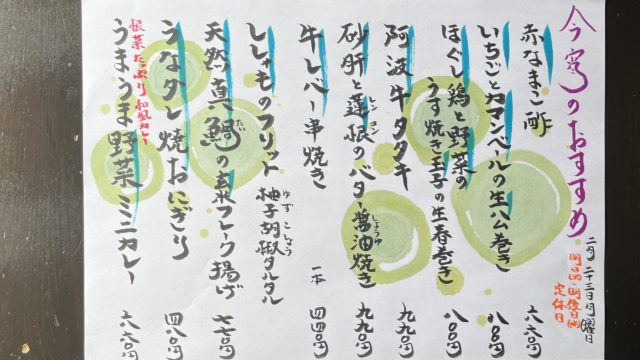 今宵のおすすめ
二月二十三日月曜日
定休日
赤なまこ酢 六六〇円
いちごとカマンベールの生ハム巻き 八八〇円
ほぐし鶏と野菜の
うす焼き玉子の生春巻き 八八〇円
阿波牛タタキ 九九〇円
砂肝と蓮根のバター醤油焼き 九九〇円
レンコン
しょうゆ
牛レバー串焼き 一本 四四〇円
ししゃものフリット 柚子胡椒タルタル
ゆずこしょう
天然真鯛の玄米フレーク揚げ 七七〇円
だい
うなタレ焼おにぎり 四八〇円
根菜たっぷり和風カレー
うまうま野菜ミニカレー 六六〇円